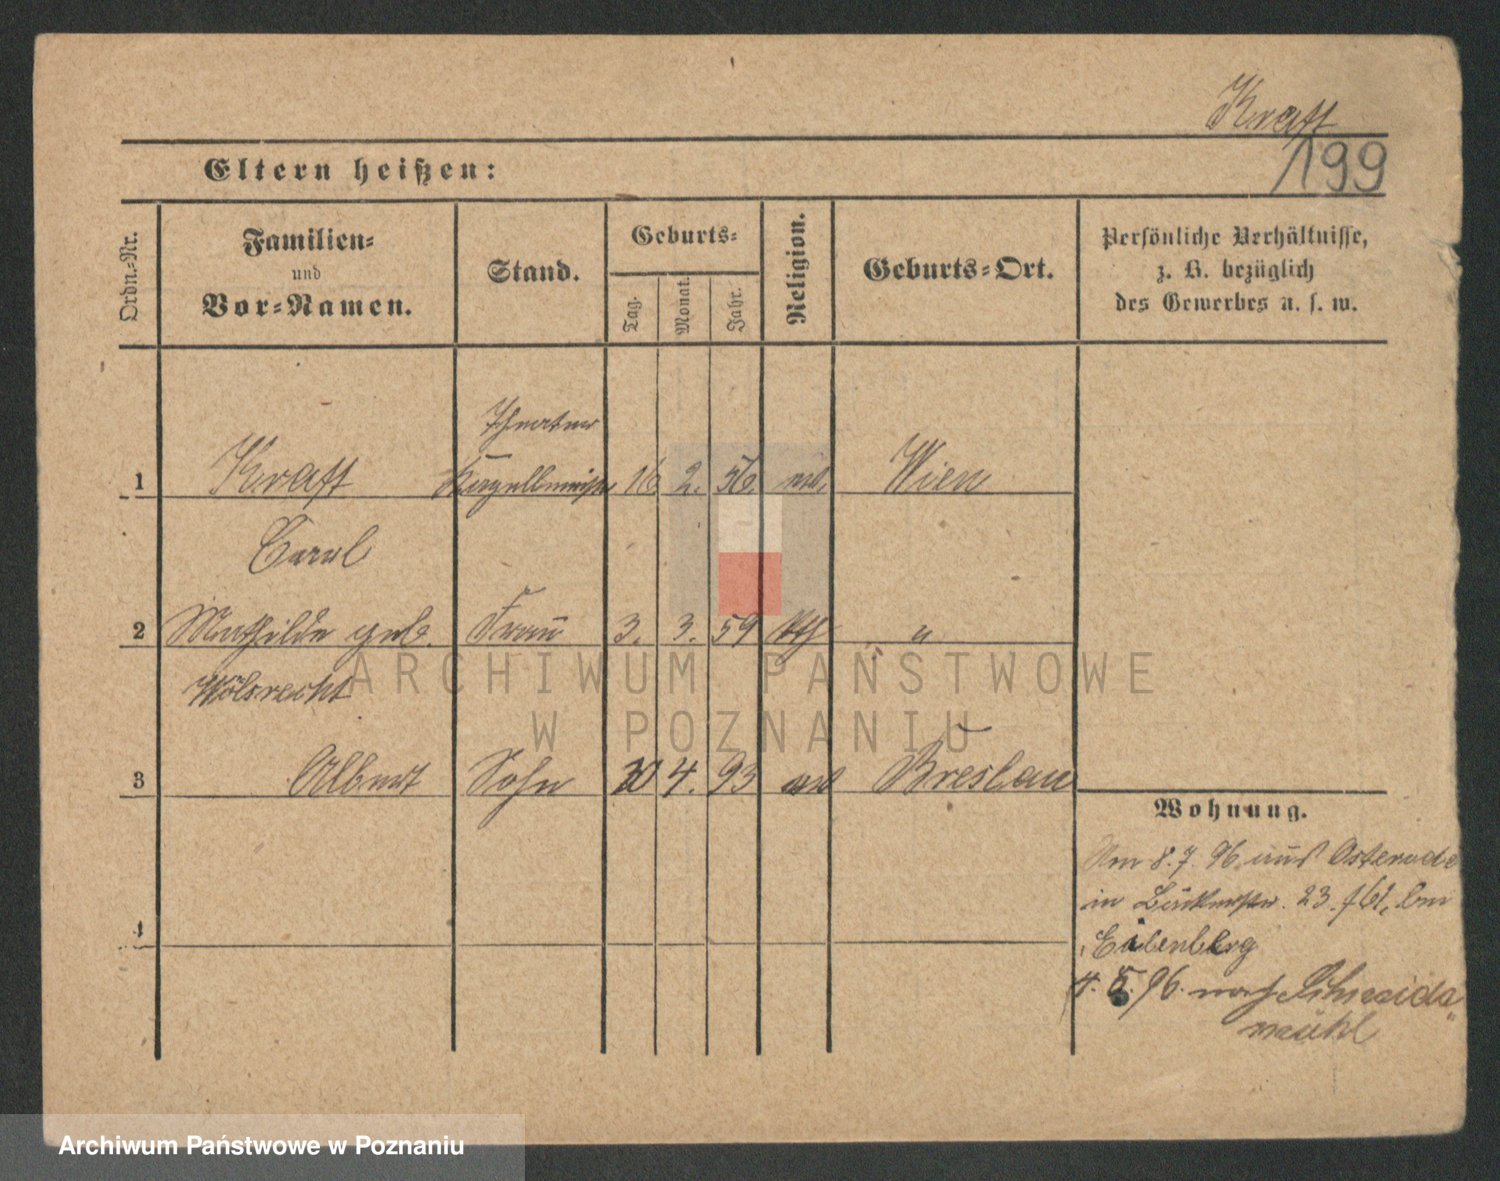 Kraft
199
Eltern heißen:
Ordn.-Nr.
Familien-
und
Vor-Namen.
Stand.
Geburts-
Tag.
Monat.
Jahr.
Religion.
Geburts-Ort.
Persönliche Verhältnisse,
z. B. bezüglich
des Gewerbes u. s. w.
Theater
1 Kraft Kapellmeister 16 2. 56. Wien
Carl
2 Mathilde geb. Frau 3. 3. 59 kth "
3 Albert Sohn 4. 93 Breslau
4
Wohnung.
Am 8.7.96 aus Osterode
in Bäckerstr. 23. bei
Eibenberg
4. 96. nach Schneide
mühl
ARCHIWUM PAŃSTWOWE
W POZNANIU
Archiwum Państwowe w Poznaniu